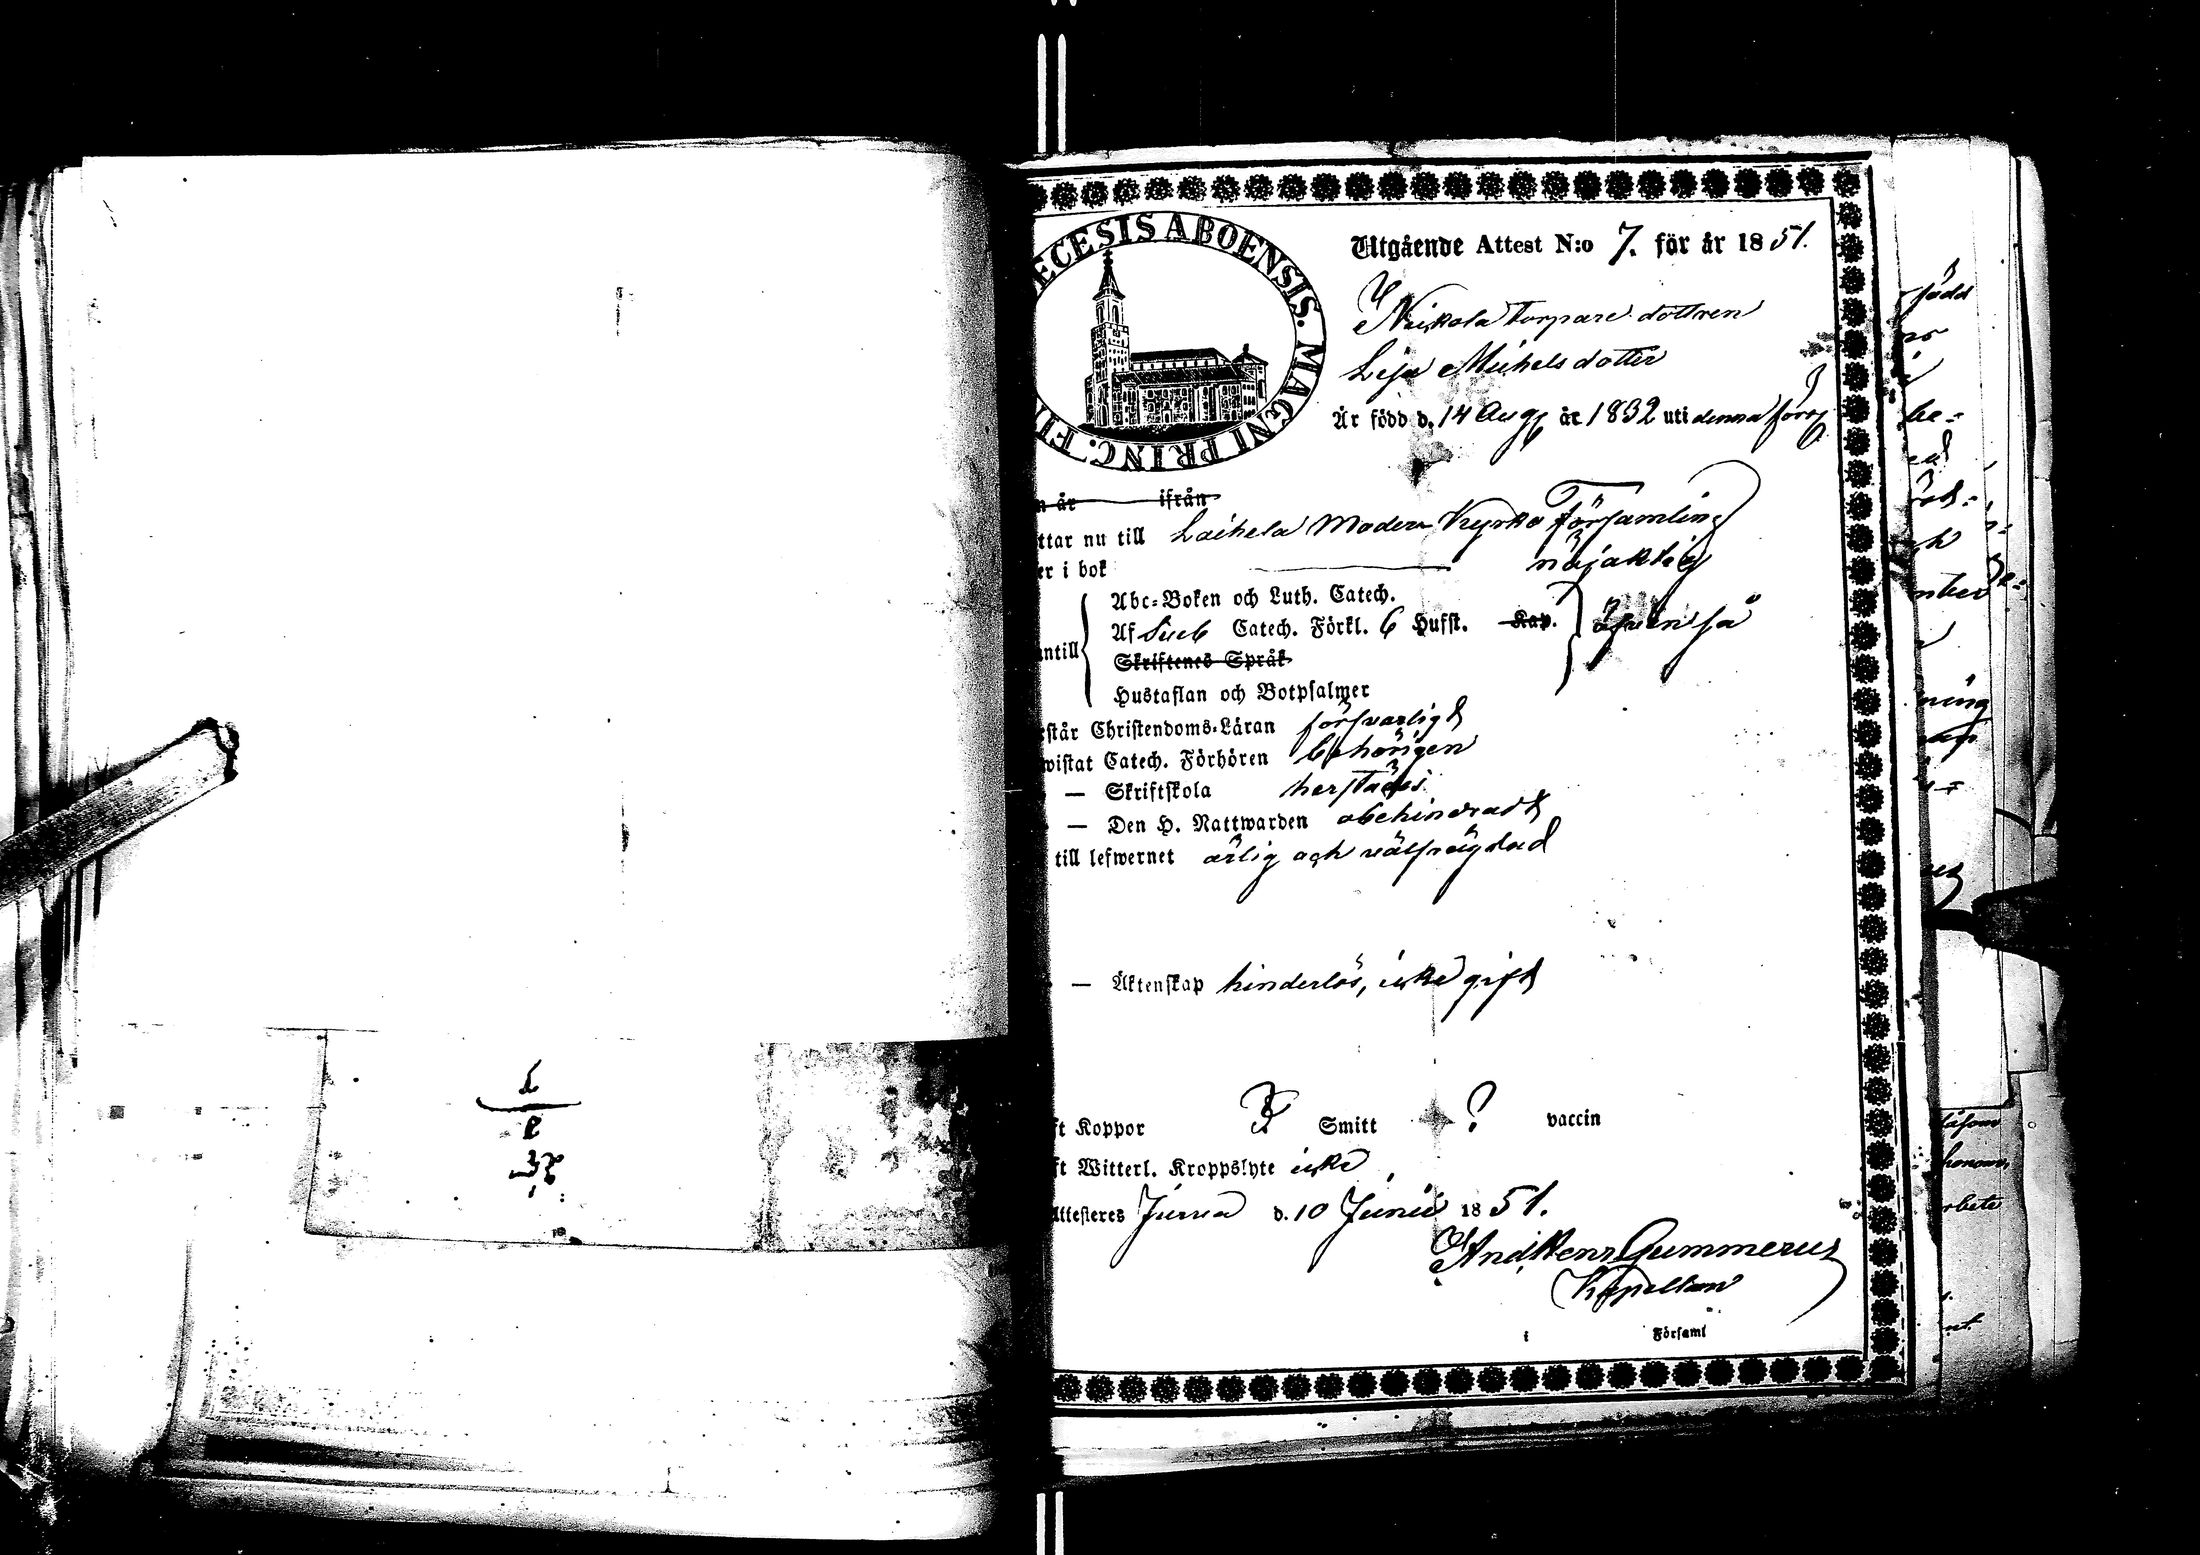 ECESIS ABOENSIS. MAGNI PRINC. FI
Utgående Attest N:o 7. för år 1851.
Torpare dottren
Lisa Michelsdotter
Är född d. 14 Aug. år 1832 uti denna förs.
n år ifrån
ttar nu till Laihela Moder Kyrko Församling
er i bok nöjaktig
Abc-Boken och Luth. Catech.
Af Sueb Catech. Förkl. 6 Hufst. Kap. äfven så
ntill
Skriftenes Språk
Hustaflan och Botpsalmer
rstår Christendoms-Läran försvarligt
wistat Catech. Förhören behörigen
— Skriftskola härstädes
— Den H. Nattwarden obehindradt
till lefwernet ärlig och välfrägdad
— Äktenskap hinderlös, icke gift
ft Koppor ? Smitt ? vaccin
ft Witterl. Kroppslyte icke
Attesteres Jurva d. 10 Junii 1851.
And. Henr. Gummerus
Kapellan
i Församl
född
be=
ning
rbete